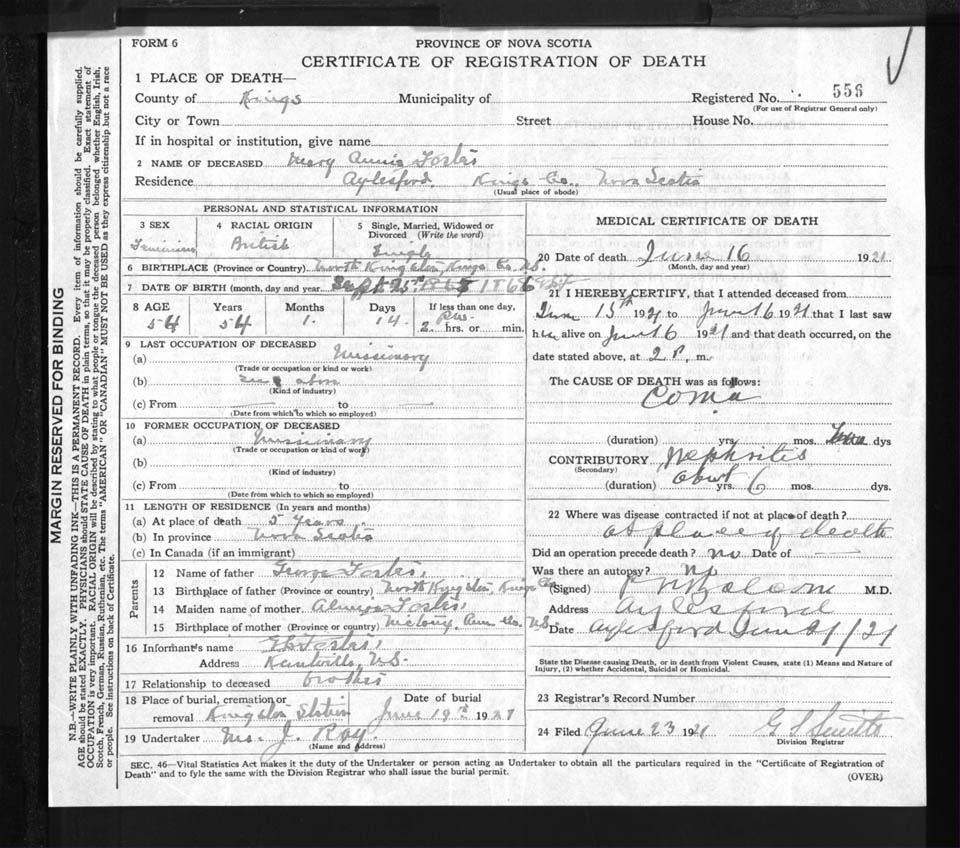 FORM 6
PROVINCE OF NOVA SCOTIA
CERTIFICATE OF REGISTRATION OF DEATH
1 PLACE OF DEATH—
County of Kings Municipality of Registered No. 556
(For use of Registrar General only)
City or Town Street House No.
If in hospital or institution, give name
2 NAME OF DECEASED Mary Annie Foster
Residence Aylesford, Kings Co., Nova Scotia
(Usual place of abode)
PERSONAL AND STATISTICAL INFORMATION
3 SEX 4 RACIAL ORIGIN 5 Single, Married, Widowed or Divorced (Write the word)
Feminine British Single
6 BIRTHPLACE (Province or Country) North Kingston, Kings Co. N.S.
7 DATE OF BIRTH (month, day and year) Sept 25th 1866
8 AGE Years Months Days If less than one day,
54 54 1. 14. 2 hrs. or min.
9 LAST OCCUPATION OF DECEASED
(a) Missionary
(Trade or occupation or kind or work)
(b) above
(Kind of industry)
(c) From to
(Date from which to which so employed)
10 FORMER OCCUPATION OF DECEASED
(a) Missionary
(Trade or occupation or kind of work)
(b)
(Kind of industry)
(c) From to
(Date from which to which so employed)
11 LENGTH OF RESIDENCE (In years and months)
(a) At place of death 5 years
(b) In province Nova Scotia
(c) In Canada (if an immigrant)
Parents
12 Name of father George Foster
13 Birthplace of father (Province or country) North Kingston, Kings Co
14 Maiden name of mother Foster
15 Birthplace of mother (Province or country) Ann. Co. N.S.
16 Informant's name Foster
Address Kentville, N.S.
17 Relationship to deceased brother
18 Place of burial, cremation or removal Kingston Station Date of burial June 19th 1921
19 Undertaker J. Roy
(Name and Address)
MEDICAL CERTIFICATE OF DEATH
20 Date of death June 16 1921
(Month, day and year)
21 I HEREBY CERTIFY, that I attended deceased from
June 15th 1921 to June 16 1921 that I last saw
her alive on June 16 1921 and that death occurred, on the
date stated above, at 2 P. m.
The CAUSE OF DEATH was as follows:
Coma
(duration) yrs. mos. dys
CONTRIBUTORY Nephritis
(Secondary)
(duration) about yrs. 6 mos. dys.
22 Where was disease contracted if not at place of death?
at place of death
Did an operation precede death? no Date of
Was there an autopsy? no
(Signed) M.D.
Address Aylesford
Date Aylesford June 21/21
State the Disease causing Death, or in death from Violent Causes, state (1) Means and Nature of
Injury, (2) whether Accidental, Suicidal or Homicidal.
23 Registrar's Record Number
24 Filed June 23 1921 G S Smith
Division Registrar
SEC. 46—Vital Statistics Act makes it the duty of the Undertaker or person acting as Undertaker to obtain all the particulars required in the "Certificate of Registration of
Death" and to fyle the same with the Division Registrar who shall issue the burial permit.
(OVER)
MARGIN RESERVED FOR BINDING
N.B.—WRITE PLAINLY WITH UNFADING INK—THIS IS A PERMANENT RECORD. Every item of information should be carefully supplied.
AGE should be stated EXACTLY. PHYSICIANS should STATE CAUSE OF DEATH in plain terms, so that it may be properly classified. Exact statement of
OCCUPATION is very important. RACIAL ORIGIN will be described by stating to what people or tongue the deceased person belonged whether English, Irish,
Scotch, French, German, Russian, Ruthenian, etc. The terms "AMERICAN" OR "CANADIAN" MUST NOT BE USED as they express citizenship but not a race
or people. See instructions on back of Certificate.